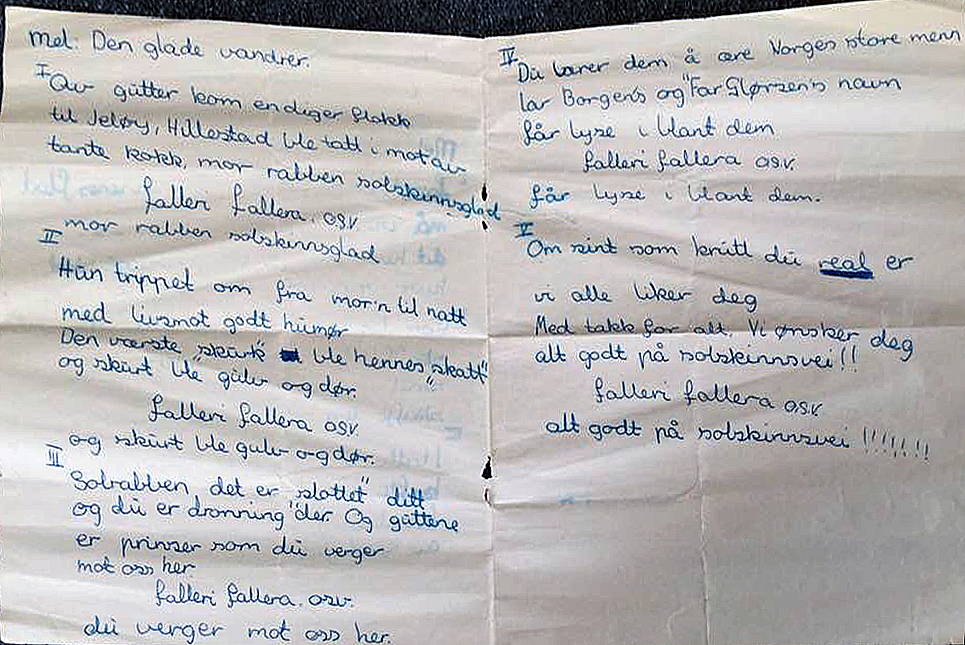 mel: Den glade vandrer.
I
Av gutter kom en diger flokk
til Jeløy, Hillestad ble tatt i mot av
tante kokk, mor rabben solskinnsglad
falleri fallera. osv.
mor rabben solskinnsglad
II
Hun trippet om fra mor'n til natt
med livsmot godt humør
Den værste "skurk" ble hennes "skatt"
og skurt ble gulv og dør.
falleri fallera osv.
og skurt ble gulv og dør.
III
Solrabben, det er slottet" ditt
og du er dronning "der. Og guttene
er prinser som du verger
mot oss her
falleri fallera. osv.
du verger mot oss her.
IV
Du lærer dem å ære Norges store menn
lar Borgen's og "Far navn
får lyse i blant dem
falleri fallera osv.
får lyse i blant dem.
V
Om sint som krutt du real er
vi alle liker deg
Med takk for alt. Vi ønsker deg
alt godt på solskinnsvei!!
falleri fallera osv.
alt godt på solskinnsvei !!!!!!!